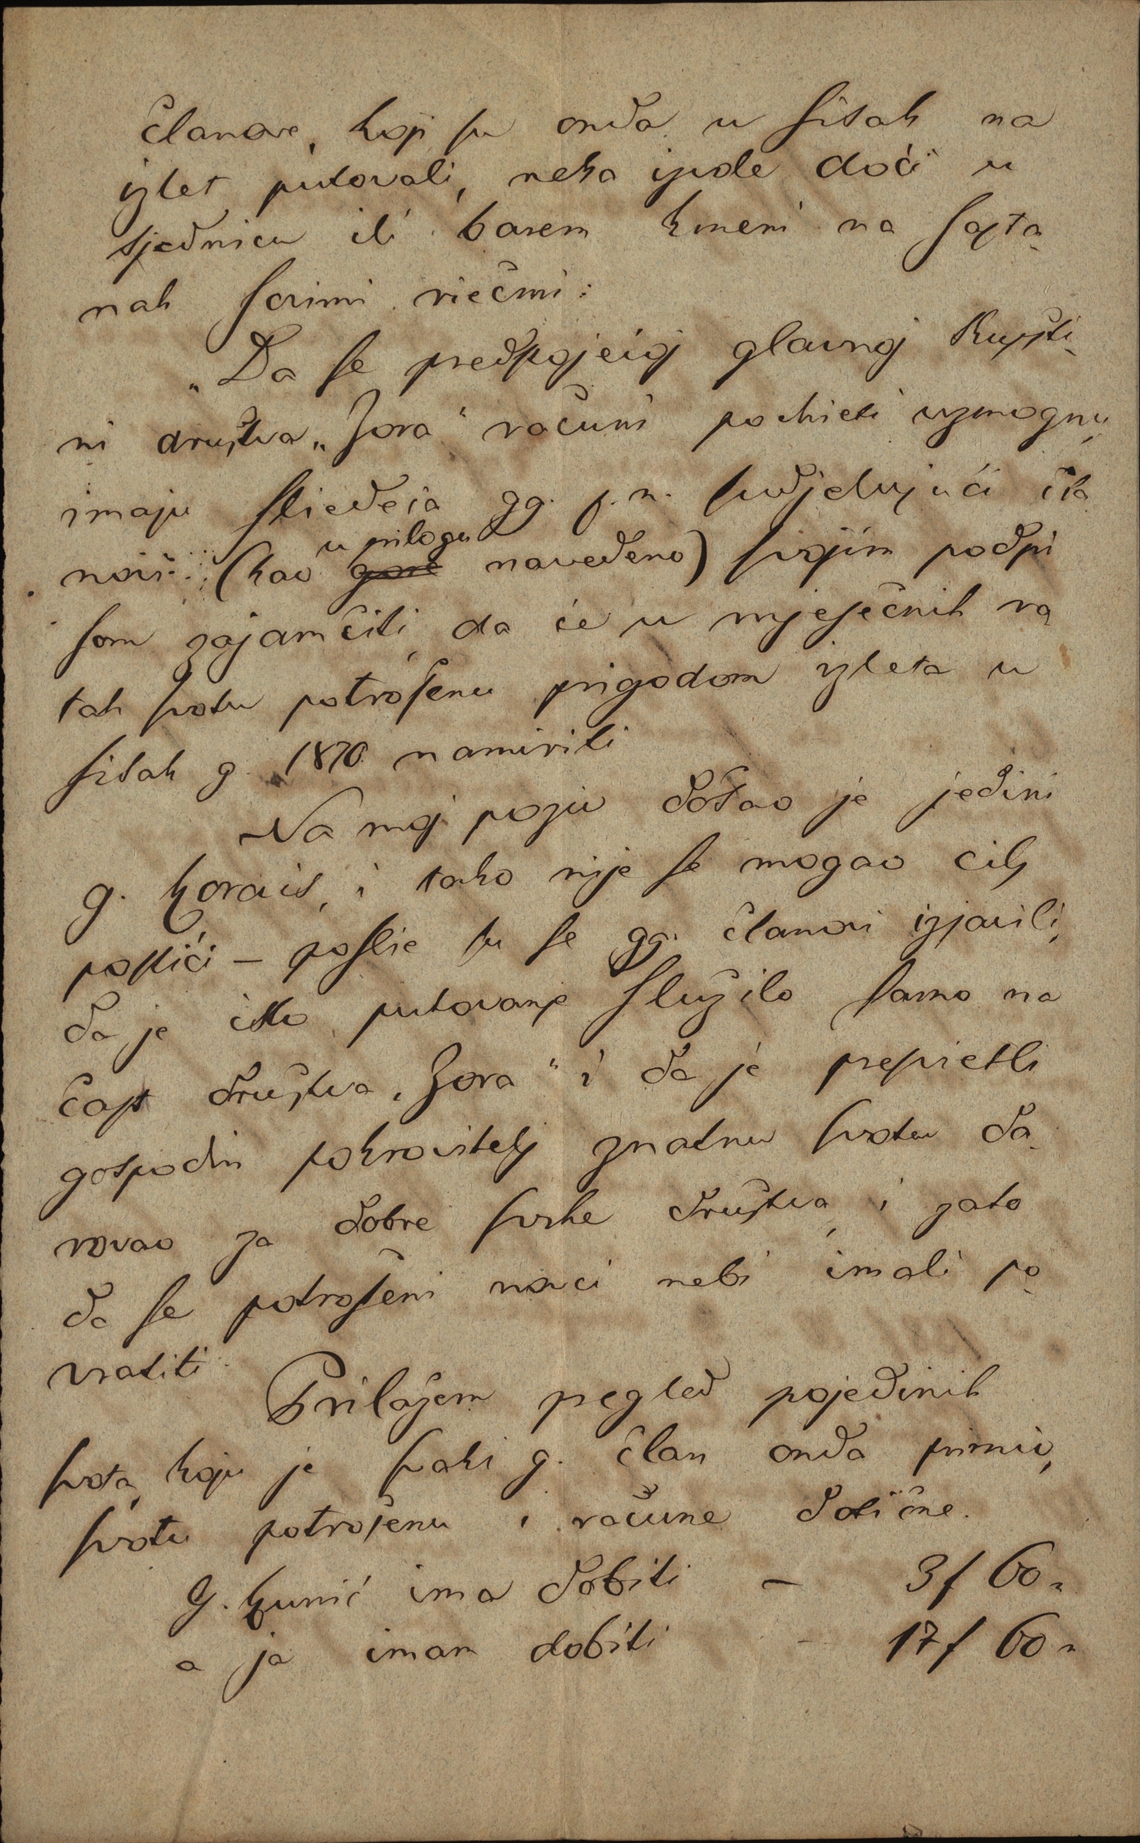 članove, koji su onda u Sisak na
izlet putovali, neka izvole doći u
sjednicu ili barem k meni na sasta
nak sovimi riečmi:
„Da se predstojećoj glavnoj skupšti
ni družtva „Zora" računi pokrieti uzmognu
imaju sliedeća gg. p. n. sudjelujući čla
novi (kao u prilogu navedeno) svojim podpi
som zajamčiti, da će u mjesečnih ra
tah svotu potrošenu prigodom izleta u
Sisak g. 1870 namiriti
Na moj poziv došao je jedini
g. Koraić, i tako nije se mogao cilj
postići – poslie su se gg. članovi izjavili,
da je isto putovanje služilo samo na
čast družtva „Zora" i da je presvietli
gospodin pokrovitelj znatnu svotu da
rovao za dobre svrhe družtva i zato
da se potrošeni novci nebi imali po
vratiti.
Prilažem pregled pojedinih
svota, koju je svaki g. član onda primio,
svotu potrošenu i račune dotične.
G. Kunić ima dobiti – 3 f 60 n
a ja imam dobiti – 17 f 60 n